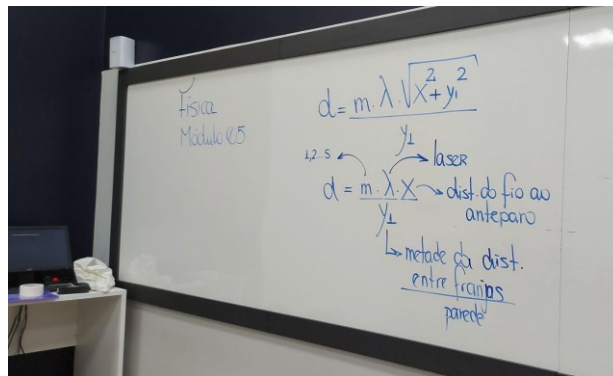 Física
Módulo 05
d = m . λ . √x² + y₁²
y₁
1,2...5
laser
d = m . λ . X
y₁
dist. do fio ao
anteparo
metade da dist.
entre franjas
parede